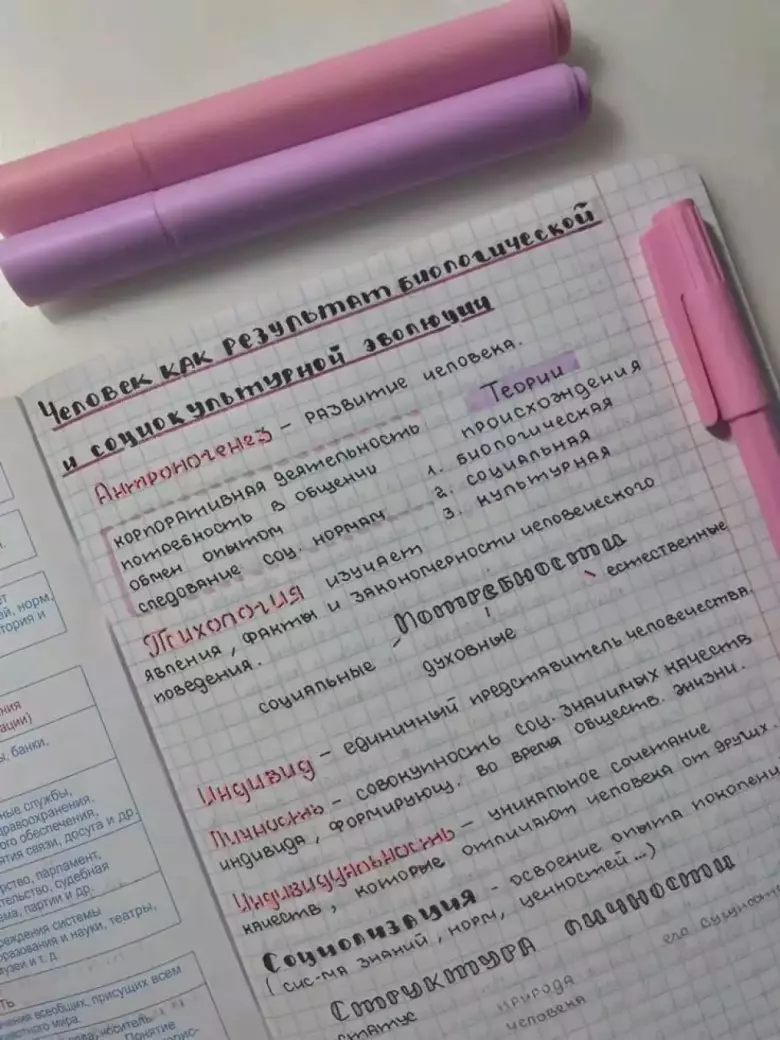 Человек как результат биологической
и социокультурной эволюции
Антропогенез – развитие человека.
корпоративная деятельность
потребность в общении
обмен опытом
следование соц. нормам
Теории
происхождения
1. биологическая
2. социальная
3. культурная
Психология изучает
явления, факты и закономерности человеческого
поведения.
Потребности
социальные
духовные
естественные
Индивид – единичный представитель человечества.
Личность – совокупность соц. значимых качеств
индивида, формирующ. во время обществ. жизни.
Индивидуальность – уникальное сочетание
качеств, которые отличают человека от других.
Социализация – освоение опыта поколени
(сис-ма знаний, норм, ценностей...)
Структура личности
статус
природа
человека
его сущност
ей, норм,
тория и
ния
ации)
ы, банки,
ные службы,
дравоохранения,
ого обеспечения,
ятия связи, досуга и др.
рство, парламент,
тельство, судебная
ема, партии и др.
реждения системы
разования и науки, театры,
узеи и т. д.
ть
чения всеобщих, присущих всем
вестного мира.
носитель
Понятие